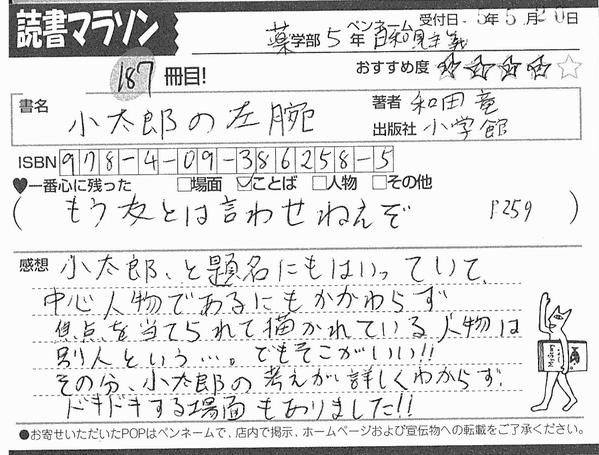 読書マラソン
薬学部5年 ペンネーム 日和見主義 受付日 5年5月20日
187冊目! おすすめ度 ★★★★☆
書名 小太郎の左腕
著者 和田竜
出版社 小学館
ISBN 978-4-09-386258-5
♥一番心に残った □場面 ☑ことば □人物 □その他
(もう友とは言わせねえぞ P259)
感想 小太郎、と題名にもはいっていて、
中心人物であるにもかかわらず
焦点を当てられて描かれている人物は
別人という…。でもそこがいい!!
その分、小太郎の考えが詳しくわからず
ドキドキする場面もありました!!
●お寄せいただいたPOPはペンネームで、店内で掲示、ホームページおよび宣伝物への転載をご了承ください。